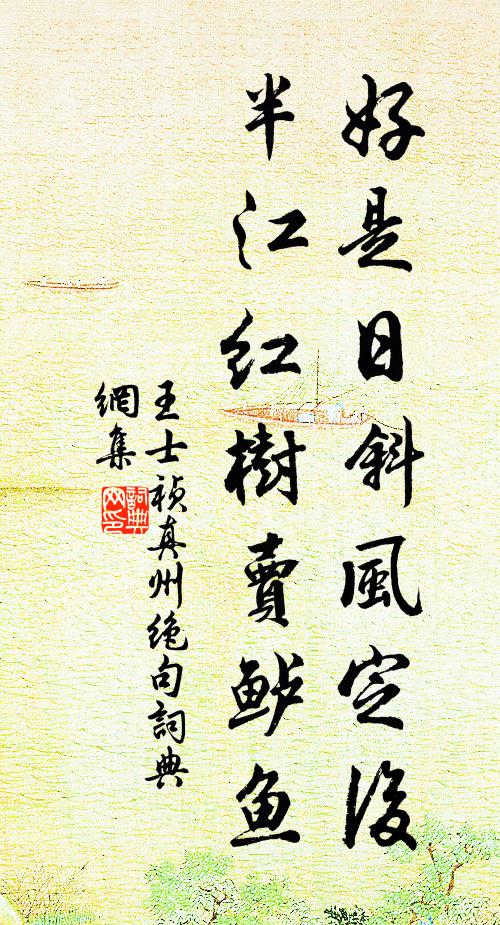 好是日斜風定後
半江紅樹賣鲈鱼
王士祯真州绝句詞典
網集
詞典
网印